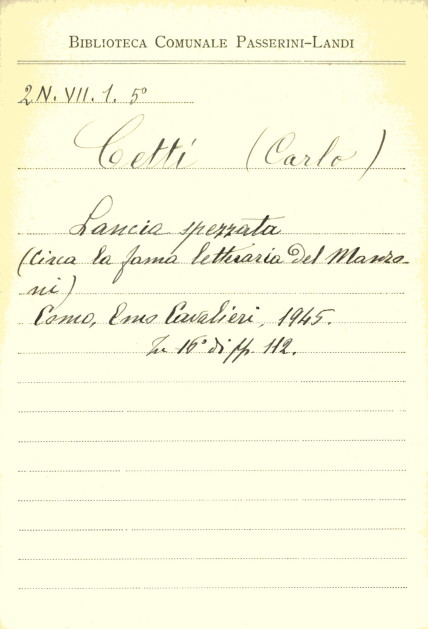 BIBLIOTECA COMUNALE PASSERINI-LANDI
2N. VII. 1. 5°
Cetti (Carlo)
Lancia spezzata
(Circa la fama letteraria del Manzo-
ni)
Como, Emo Cavalieri, 1945.
In 16° di pp. 112.